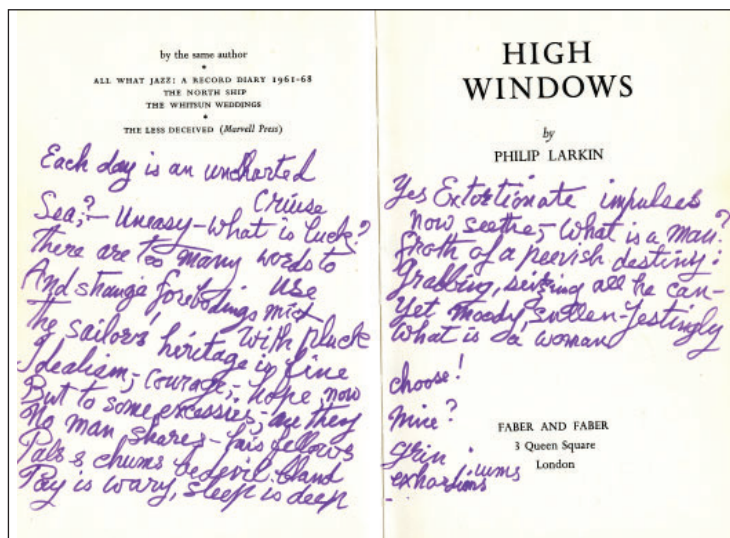 by the same author
*
ALL WHAT JAZZ: A RECORD DIARY 1961-68
THE NORTH SHIP
THE WHITSUN WEDDINGS
*
THE LESS DECEIVED (Marvell Press)
Each day is an uncharted
Cruise
Sea;?- Uneasy-what is luck?
there are too many words to
use
And strange forebodings mix
with pluck
The sailors' heritage is fine
Idealism,- courage,- hope, now
But to some excessies,- are they
No man shares- his fellows
Pals & chums bedevil. bland
Pay is wary, sleep is deep
HIGH
WINDOWS
by
PHILIP LARKIN
Yes Extortionate impulses
now seethe,- What is a man?
froth of a peevish destiny:
Grabbing, seizing all he can-
Yet moody, sullen-Jestingly
What is a woman
choose!
mine?
grin
FABER AND FABER
3 Queen Square
London